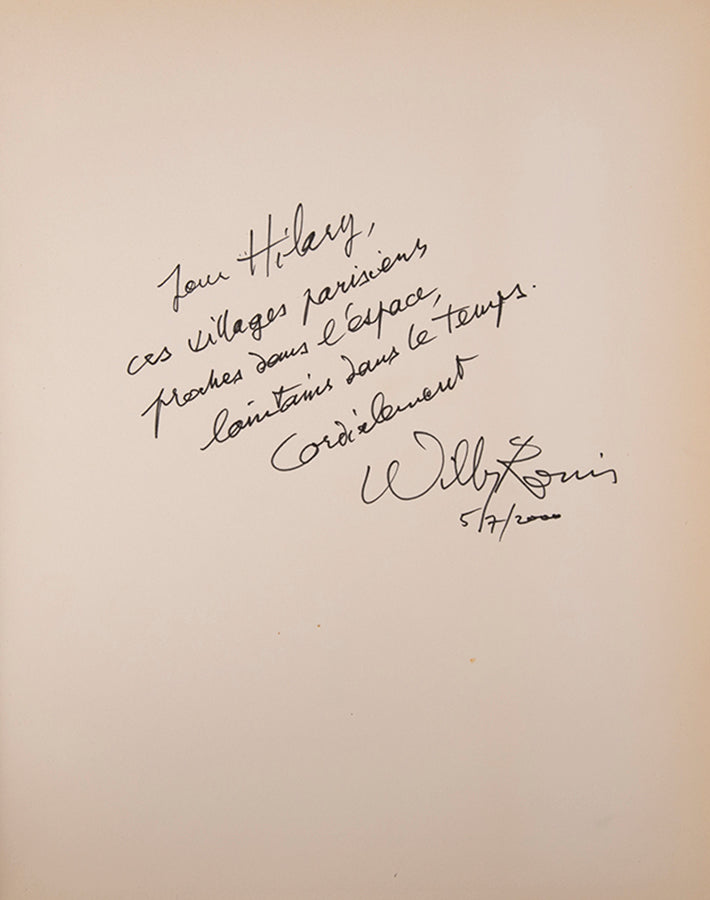 Pour Hilary,
ces villages parisiens
proches dans l'espace,
lointains dans le temps.
Cordialement
Willy Ronis
5/7/2000